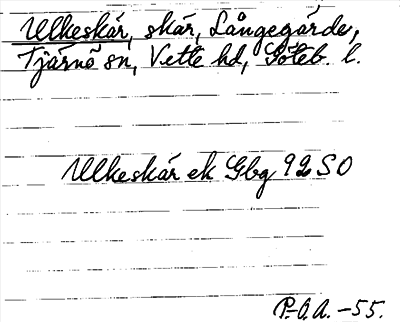 Ulkeskär, skär, Långegärde,
Tjärnö sn, Vette hd, Göteb. l.
Ulkeskär ek Gbg 92 SO
P.-O.A. -55.